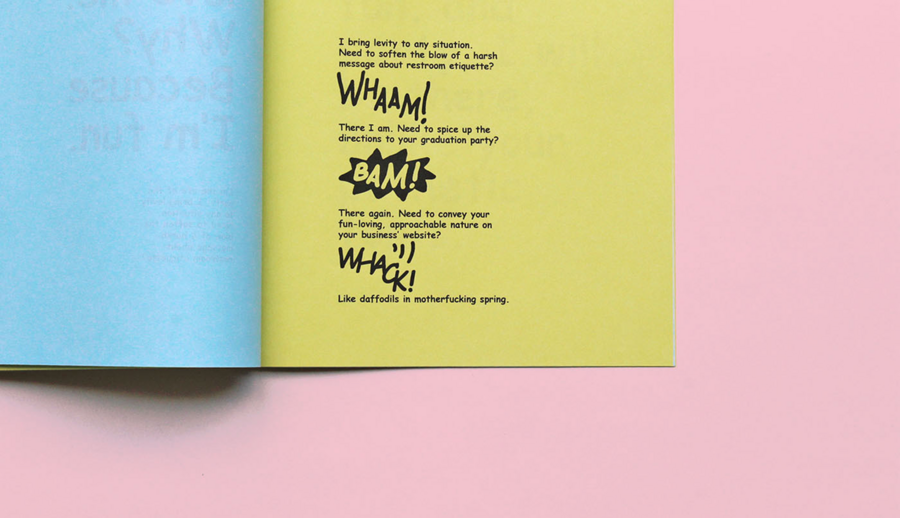 I bring levity to any situation.
Need to soften the blow of a harsh
message about restroom etiquette?
WHAAM!
There I am. Need to spice up the
directions to your graduation party?
BAM!
There again. Need to convey your
fun-loving, approachable nature on
your business' website?
WHACK!
Like daffodils in motherfucking spring.
Why?
Because
I'm fun.